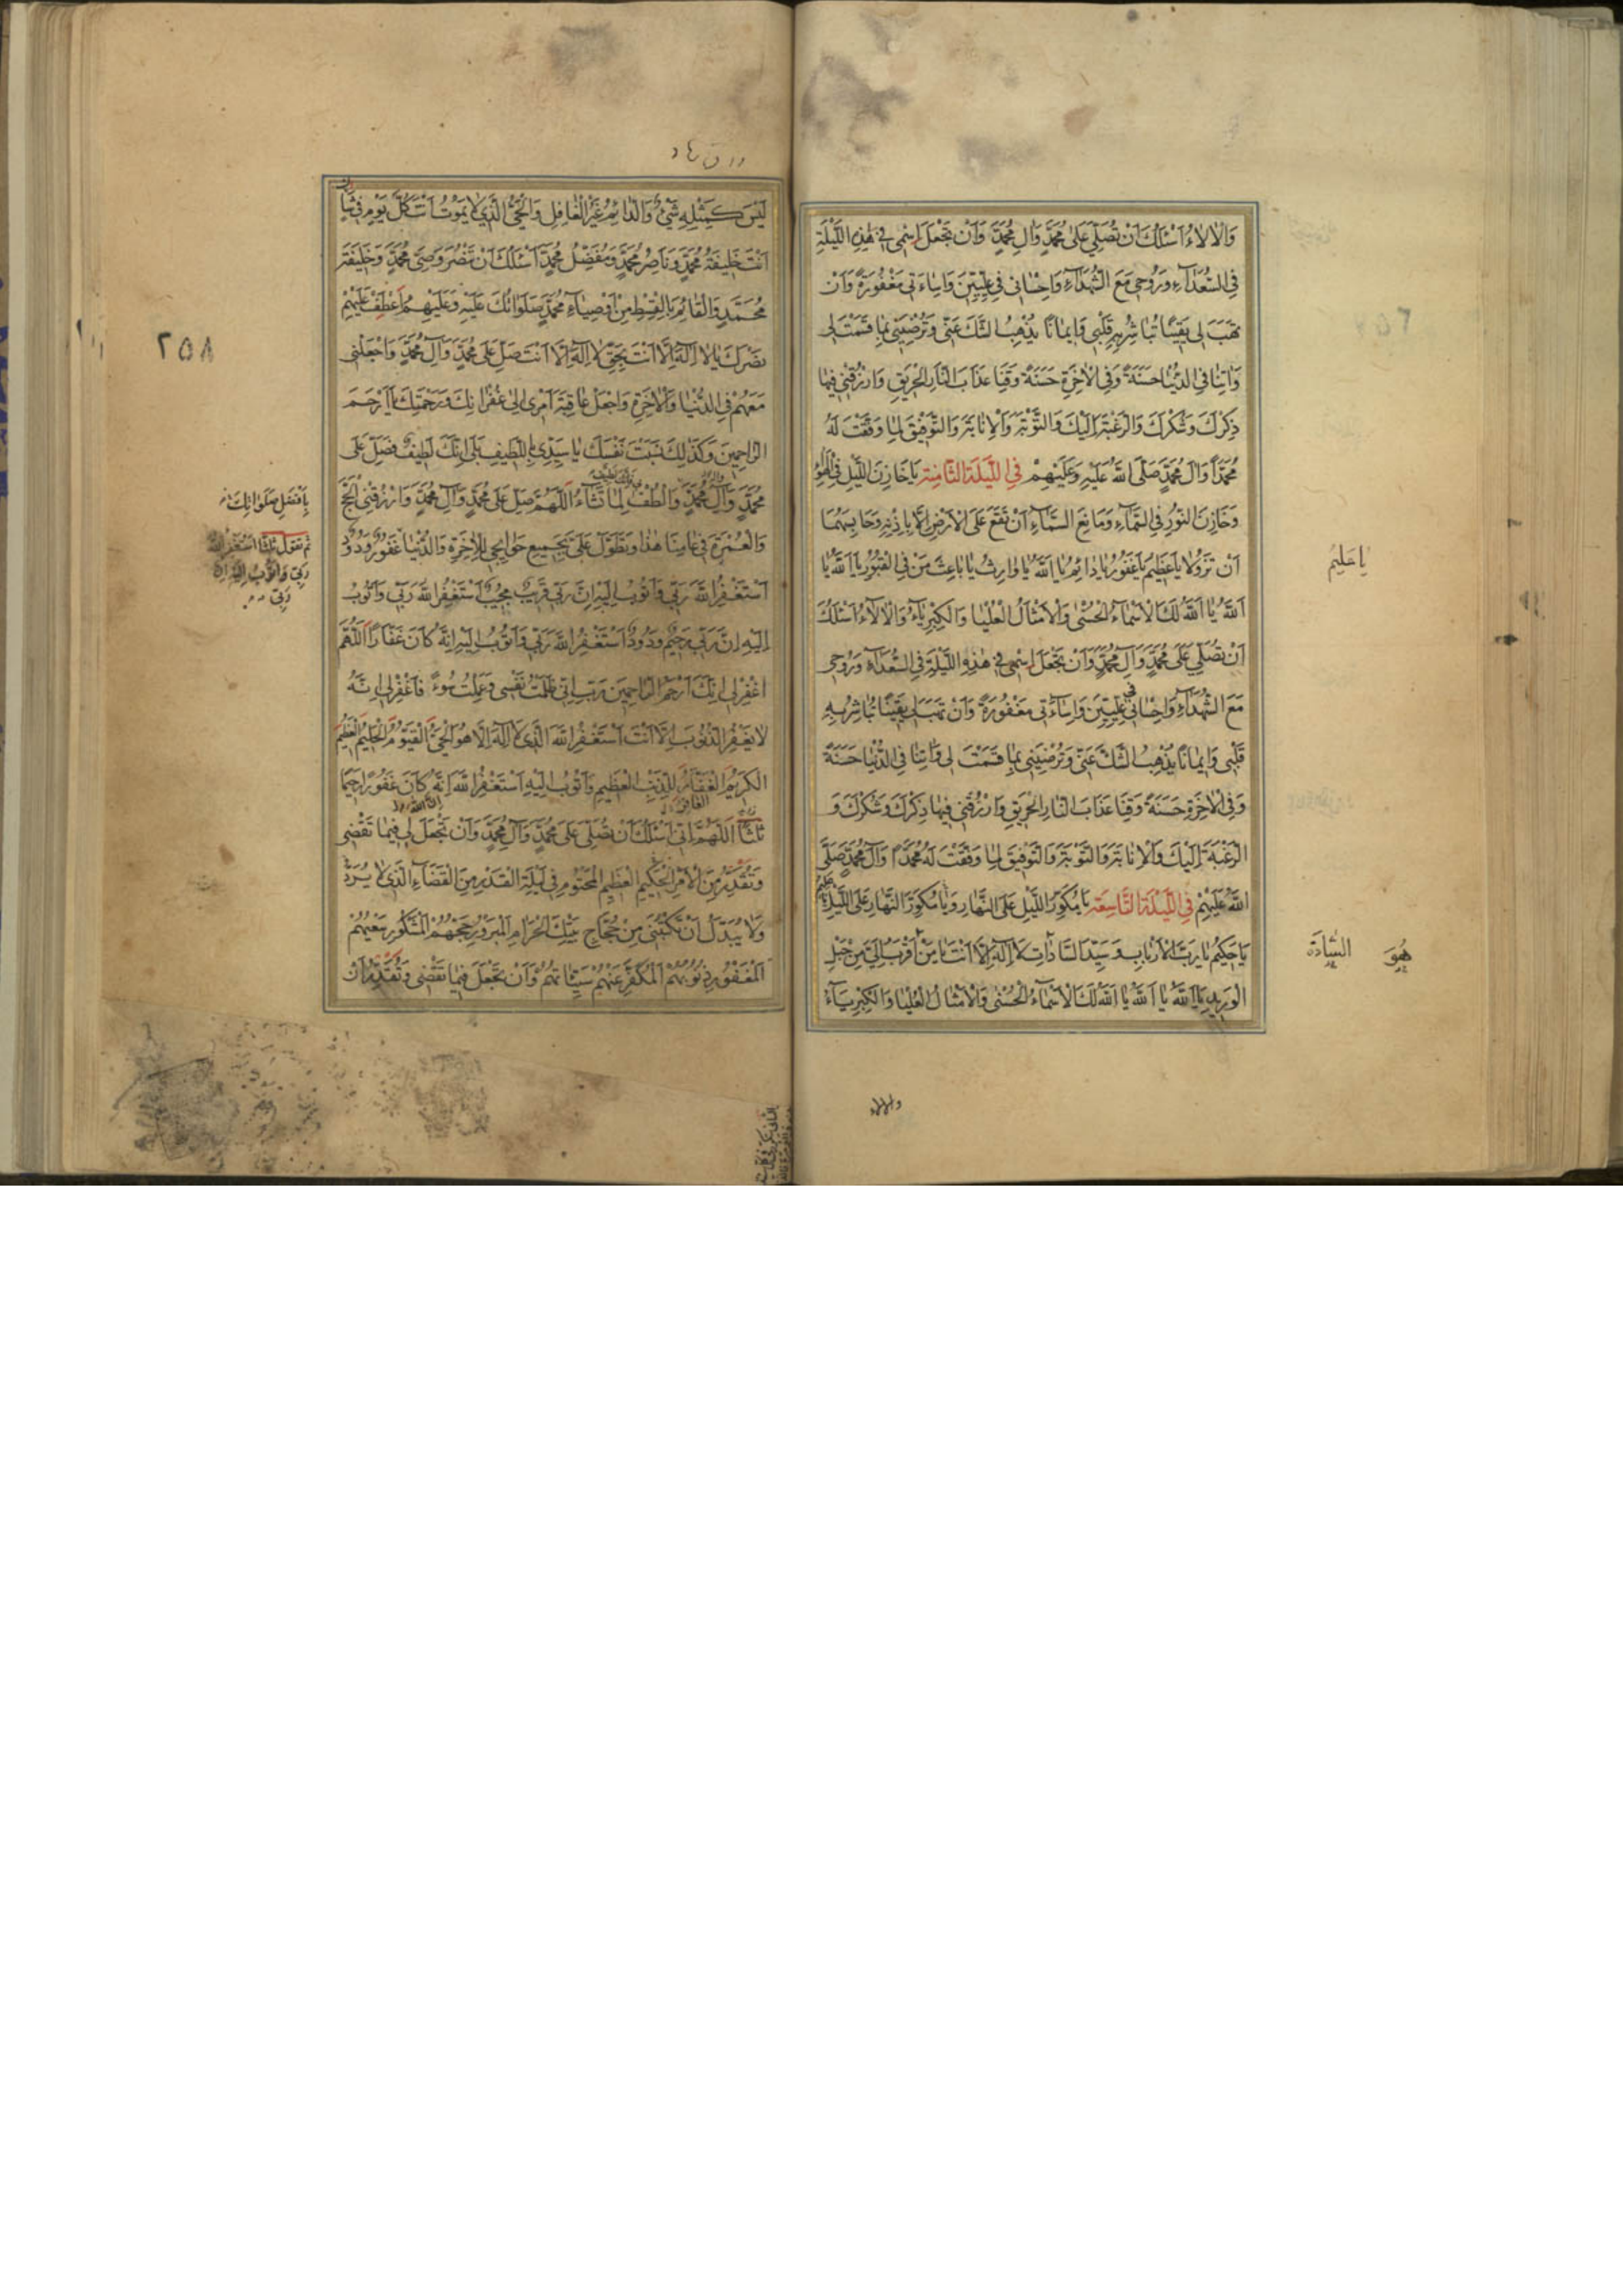 وَالْاٰلَاءُ اَسْئَلُكَ اَنْ تُصَلِّيَ عَلٰى مُحَمَّدٍ وَاٰلِ مُحَمَّدٍ وَاَنْ تَجْعَلَ اِسْمِي فِي هٰذِهِ اللَّيْلَةِ
فِي السُّعَدَآءِ وَرُوحِي مَعَ الشُّهَدَآءِ وَاِحْسَانِي فِي عِلِّيِّينَ وَاِسَاءَتِي مَغْفُورَةً وَاَنْ
تَهَبَ لِي يَقِينًا تُبَاشِرُ بِهِ قَلْبِي وَاِيمَانًا يُذْهِبُ الشَّكَّ عَنِّي وَتُرْضِيَنِي بِمَا قَسَمْتَ لِي
وَاٰتِنَا فِي الدُّنْيَا حَسَنَةً وَفِي الْاٰخِرَةِ حَسَنَةً وَقِنَا عَذَابَ النَّارِ الْحَرِيقِ وَارْزُقْنِي فِيهَا
ذِكْرَكَ وَشُكْرَكَ وَالرَّغْبَةَ اِلَيْكَ وَالتَّوْبَةَ وَالْاِنَابَةَ وَالتَّوْفِيقَ لِمَا وَفَّقْتَ لَهُ
مُحَمَّدًا وَاٰلَ مُحَمَّدٍ صَلَّى اللهُ عَلَيْهِ وَعَلَيْهِمْ فِي اللَّيْلَةِ الثَّامِنَةِ يَا خَازِنَ اللَّيْلِ فِي الْهَوَآءِ
وَخَازِنَ النُّورِ فِي السَّمَآءِ وَمَانِعَ السَّمَآءِ اَنْ تَقَعَ عَلَى الْاَرْضِ اِلَّا بِاِذْنِهِ وَحَابِسَهُمَا
اَنْ تَزُولَا يَا عَظِيمُ يَا غَفُورُ يَا دَائِمُ يَا اَللهُ يَا وَارِثُ يَا بَاعِثَ مَنْ فِي الْقُبُورِ يَا اَللهُ يَا
يَا حَلِيمُ
اَللهُ يَا اَللهُ لَكَ الْاَسْمَآءُ الْحُسْنٰى وَالْاَمْثَالُ الْعُلْيَا وَالْكِبْرِيَآءُ وَالْاٰلَآءُ اَسْئَلُكَ
اَنْ تُصَلِّيَ عَلٰى مُحَمَّدٍ وَاٰلِ مُحَمَّدٍ وَاَنْ تَجْعَلَ اِسْمِي فِي هٰذِهِ اللَّيْلَةِ فِي السُّعَدَآءِ وَرُوحِي
مَعَ الشُّهَدَآءِ وَاِحْسَانِي فِي عِلِّيِّينَ وَاِسَآءَتِي مَغْفُورَةً وَاَنْ تَهَبَ لِي يَقِينًا تُبَاشِرُ بِهِ
قَلْبِي وَاِيمَانًا يُذْهِبُ الشَّكَّ عَنِّي وَتُرْضِيَنِي بِمَا قَسَمْتَ لِي وَاٰتِنَا فِي الدُّنْيَا حَسَنَةً
وَفِي الْاٰخِرَةِ حَسَنَةً وَقِنَا عَذَابَ النَّارِ الْحَرِيقِ وَارْزُقْنِي فِيهَا ذِكْرَكَ وَشُكْرَكَ وَ
الرَّغْبَةَ اِلَيْكَ وَالْاِنَابَةَ وَالتَّوْبَةَ وَالتَّوْفِيقَ لِمَا وَفَّقْتَ لَهُ مُحَمَّدًا وَاٰلَ مُحَمَّدٍ صَلَّى
اللهُ عَلَيْهِمْ فِي اللَّيْلَةِ التَّاسِعَةِ يَا مُكَوِّرَ اللَّيْلِ عَلَى النَّهَارِ وَيَا مُكَوِّرَ النَّهَارِ عَلَى اللَّيْلِ يَا عَلِيمُ
يَا حَكِيمُ يَا رَبَّ الْاَرْبَابِ وَسَيِّدَ السَّادَاتِ لَا اِلٰهَ اِلَّا اَنْتَ يَا مَنْ اَقْرَبُ اِلَيَّ مِنْ حَبْلِ
هُوَ السَّادَةَ
الْوَرِيدِ يَا اَللهُ يَا اَللهُ يَا اَللهُ لَكَ الْاَسْمَآءُ الْحُسْنٰى وَالْاَمْثَالُ الْعُلْيَا وَالْكِبْرِيَآءُ
والالاء
٢٥٨
لَيْسَ كَمِثْلِهِ شَيْءٌ وَالدَّائِمُ غَيْرُ الْغَافِلِ وَالْحَيُّ الَّذِي لَا يَمُوتُ اَنْتَ كُلَّ يَوْمٍ فِي شَاْنٍ
اَنْتَ خَلِيفَةُ مُحَمَّدٍ وَنَاصِرُ مُحَمَّدٍ وَمُفَضِّلُ مُحَمَّدٍ اَسْئَلُكَ اَنْ تَنْصُرَ وَصِيَّ مُحَمَّدٍ وَخَلِيفَةَ
مُحَمَّدٍ وَالْقَائِمَ بِالْقِسْطِ مِنْ اَوْصِيَآءِ مُحَمَّدٍ صَلَوَاتُكَ عَلَيْهِ وَعَلَيْهِمْ اَعْطِفْ عَلَيْهِمْ
نَصْرَكَ يَا لَا اِلٰهَ اِلَّا اَنْتَ بِحَقِّ لَا اِلٰهَ اِلَّا اَنْتَ صَلِّ عَلٰى مُحَمَّدٍ وَاٰلِ مُحَمَّدٍ وَاجْعَلْنِي
مَعَهُمْ فِي الدُّنْيَا وَالْاٰخِرَةِ وَاجْعَلْ عَاقِبَةَ اَمْرِي اِلٰى غُفْرَانِكَ وَرَحْمَتِكَ يَا اَرْحَمَ
الرَّاحِمِينَ وَكَذٰلِكَ نَسَبْتَ نَفْسَكَ يَا سَيِّدِي بِاللَّطِيفِ بَلٰى اِنَّكَ لَطِيفٌ فَصَلِّ عَلٰى
مُحَمَّدٍ وَاٰلِ مُحَمَّدٍ وَالْطُفْ لِمَا تَشَآءُ اَللّٰهُمَّ صَلِّ عَلٰى مُحَمَّدٍ وَاٰلِ مُحَمَّدٍ وَارْزُقْنِي الْحَجَّ
بِاَفْضَلِ صَلَوَاتِكَ
وَالْعُمْرَةَ فِي عَامِنَا هٰذَا وَتَطَوَّلْ عَلَيَّ بِجَمِيعِ حَوَائِجِي لِلْاٰخِرَةِ وَالدُّنْيَا غَفُورٌ وَدُودٌ
ثم تقول ثلثا استغفر الله
ربي واتوب اليه ان
ربي
اَسْتَغْفِرُ اللهَ رَبِّي وَاَتُوبُ اِلَيْهِ اِنَّ رَبِّي قَرِيبٌ مُجِيبٌ اَسْتَغْفِرُ اللهَ رَبِّي وَاَتُوبُ
اِلَيْهِ اِنَّ رَبِّي رَحِيمٌ وَدُودٌ اَسْتَغْفِرُ اللهَ رَبِّي وَاَتُوبُ اِلَيْهِ اِنَّهُ كَانَ غَفَّارًا اَللّٰهُمَّ
اغْفِرْ لِي اِنَّكَ اَرْحَمُ الرَّاحِمِينَ رَبِّ اِنِّي ظَلَمْتُ نَفْسِي وَعَمِلْتُ سُوءً فَاغْفِرْ لِي اِنَّهُ
لَا يَغْفِرُ الذُّنُوبَ اِلَّا اَنْتَ اَسْتَغْفِرُ اللهَ الَّذِي لَا اِلٰهَ اِلَّا هُوَ الْحَيُّ الْقَيُّومُ الْحَلِيمُ الْعَظِيمُ
الْكَرِيمُ الْغَفَّارُ لِلذَّنْبِ الْعَظِيمِ وَاَتُوبُ اِلَيْهِ اَسْتَغْفِرُ اللهَ اِنَّهُ كَانَ غَفُورًا رَحِيمًا
ثلثا اَللّٰهُمَّ اِنِّي اَسْئَلُكَ اَنْ تُصَلِّيَ عَلٰى مُحَمَّدٍ وَاٰلِ مُحَمَّدٍ وَاَنْ تَجْعَلَ لِي فِيمَا تَقْضِي
وَتُقَدِّرُ مِنَ الْاَمْرِ الْحَكِيمِ الْعَظِيمِ الْمَحْتُومِ فِي لَيْلَةِ الْقَدْرِ مِنَ الْقَضَآءِ الَّذِي لَا يُرَدُّ
وَلَا يُبَدَّلُ اَنْ تَكْتُبَنِي مِنْ حُجَّاجِ بَيْتِكَ الْحَرَامِ الْمَبْرُورِ حَجُّهُمُ الْمَشْكُورِ سَعْيُهُمْ
الْمَغْفُورِ ذُنُوبُهُمُ الْمُكَفَّرِ عَنْهُمْ سَيِّئَاتُهُمْ وَاَنْ تَجْعَلَ فِيمَا تَقْضِي وَتُقَدِّرُ اَنْ